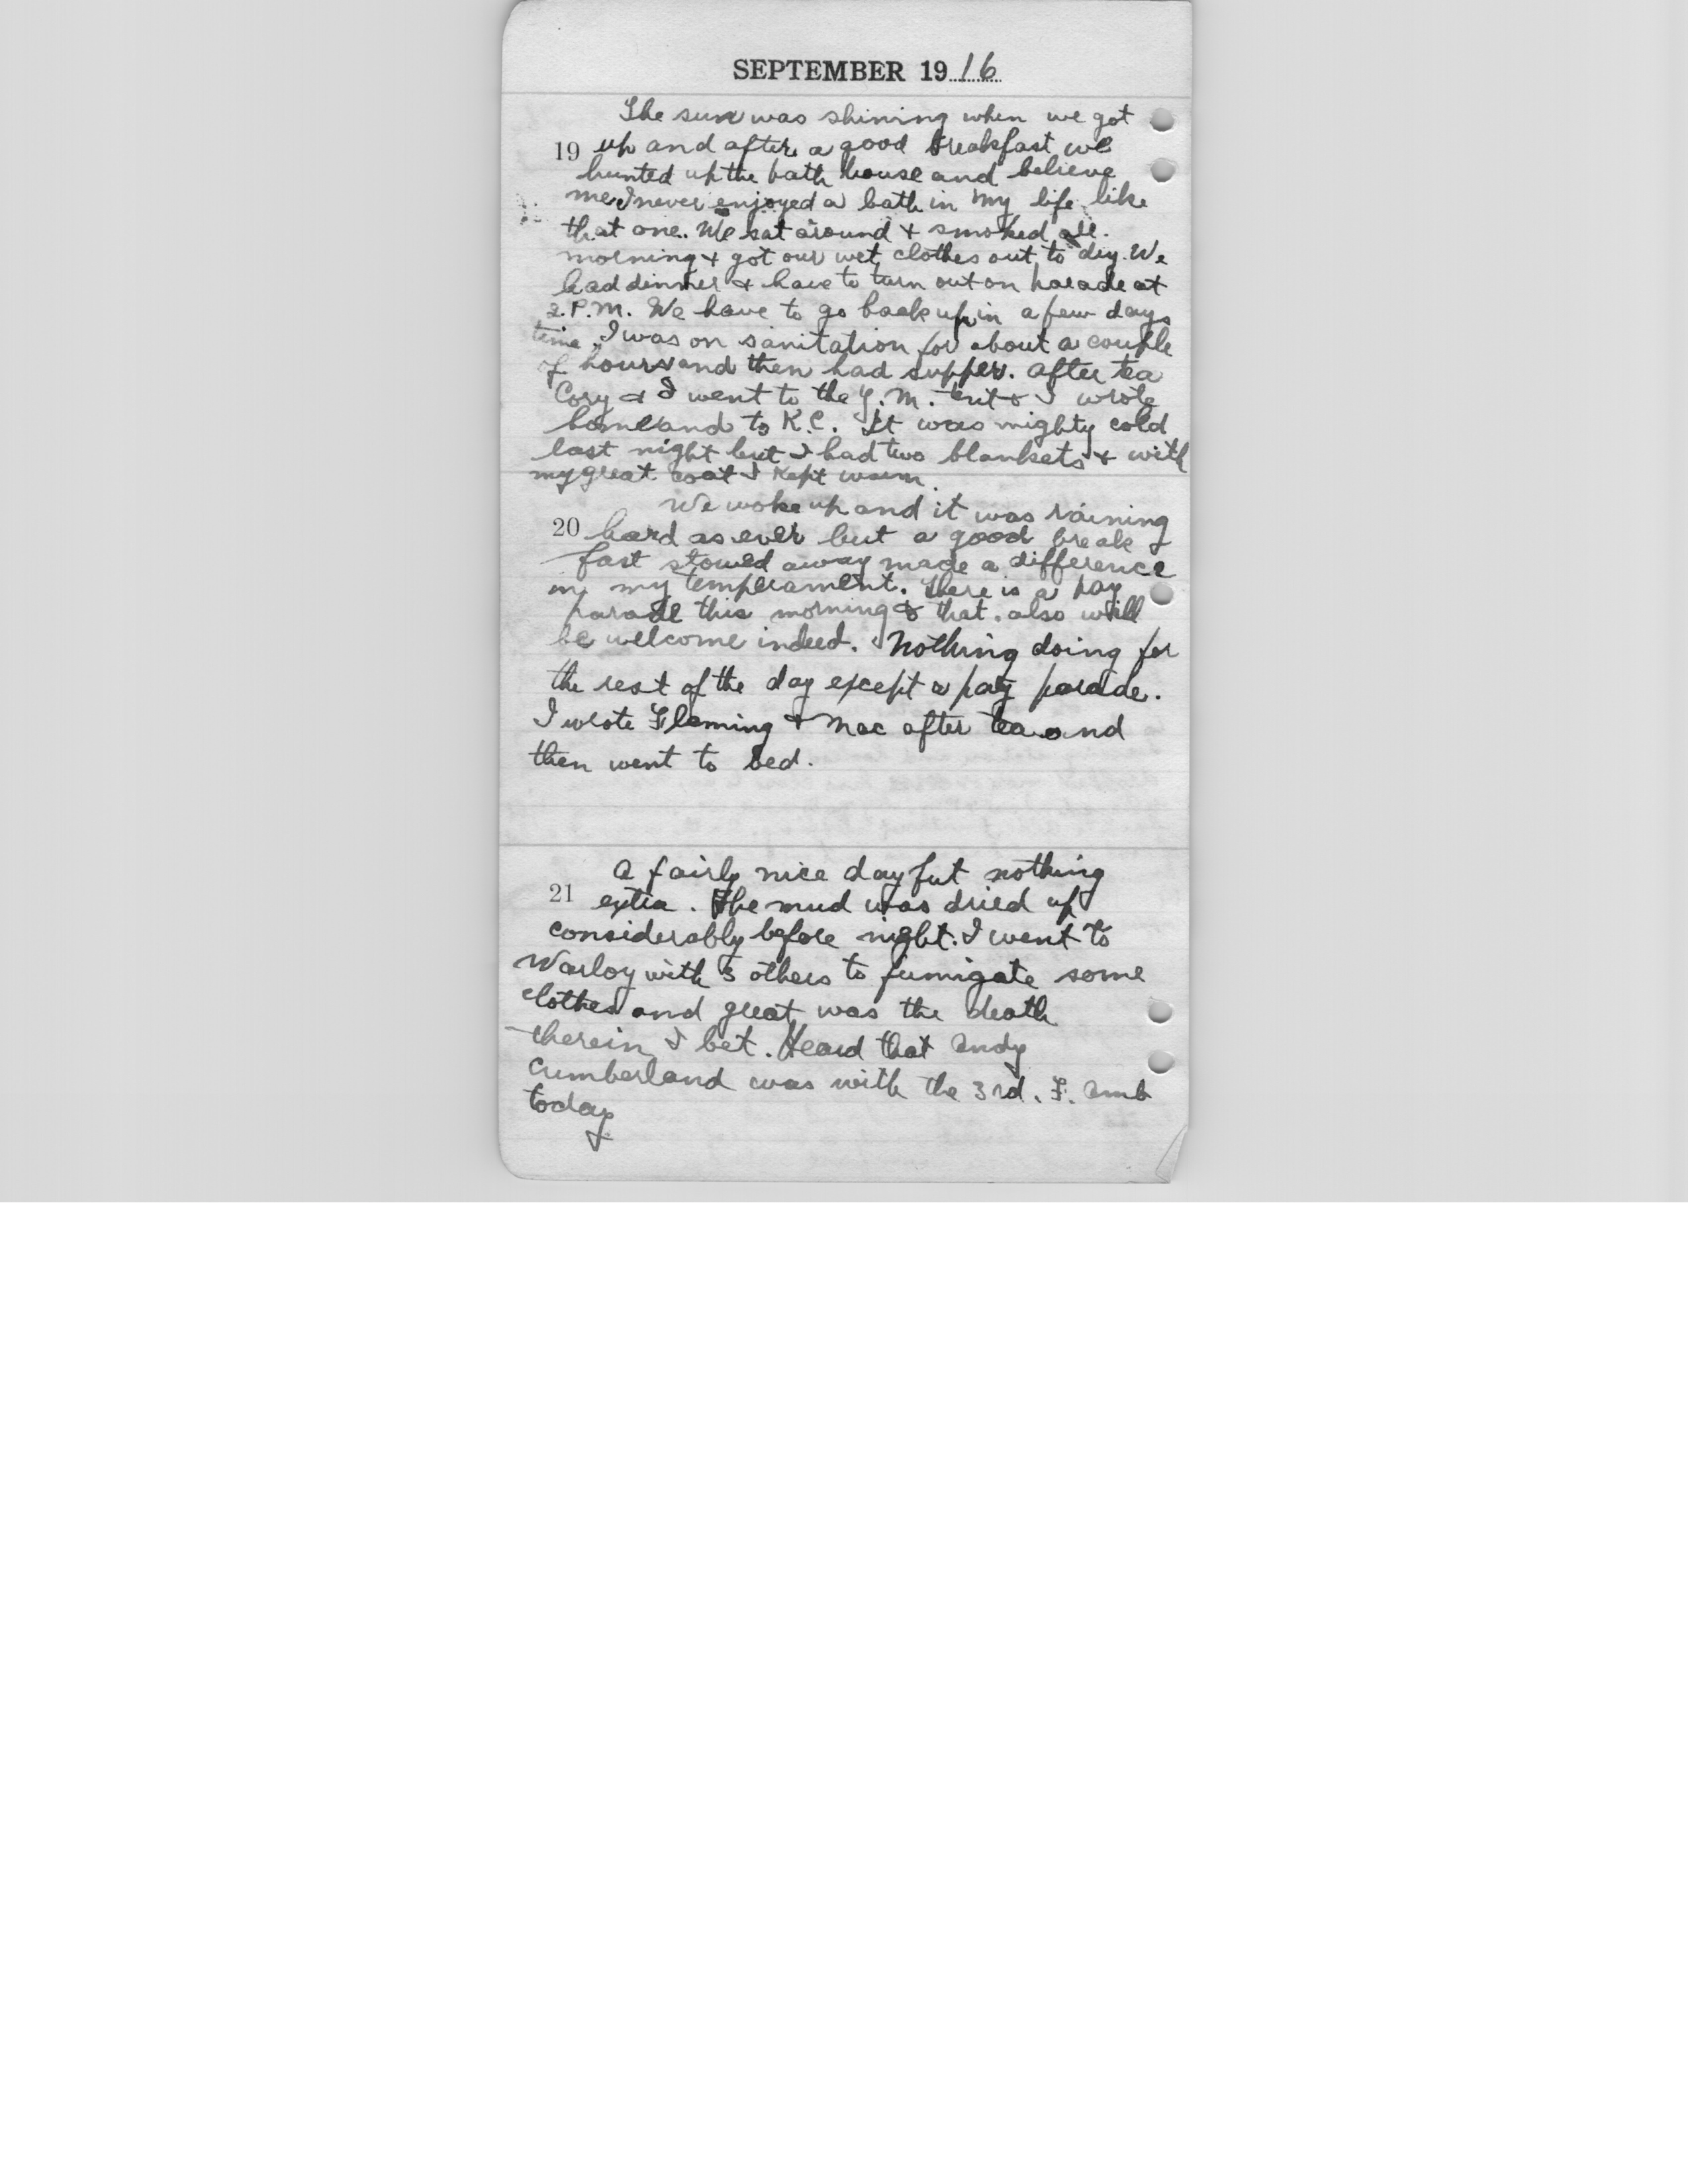 SEPTEMBER 1916
The sun was shining when we got
19 up and after a good breakfast we
hunted up the bath house and believe
me I never enjoyed a bath in my life like
that one. We sat around + smoked all
morning + got our wet clothes out to dry. We
had dinner + have to turn out on parade at
2.P.M. We have to go back up in a few days
time. I was on sanitation for about a couple
of hours and then had supper. After tea
Cory + I went to the Y.M. tent + I wrote
home and to K.C. It was mighty cold
last night but I had two blankets + with
my great coat I kept warm.
We woke up and it was raining
20 hard as ever but a good break
fast stowed away made a difference
in my temperament. There is a pay
parade this morning & that also will
be welcome indeed. Nothing doing for
the rest of the day except a pay parade.
I wrote Fleming + Mac after tea and
then went to bed.
A fairly nice day but nothing
21 extra. The mud was dried up
considerably before night. I went to
Warloy with 3 others to fumigate some
clothes and great was the death
therein I bet. Heard that Andy
Cumberland was with the 3rd. F. Amb
today